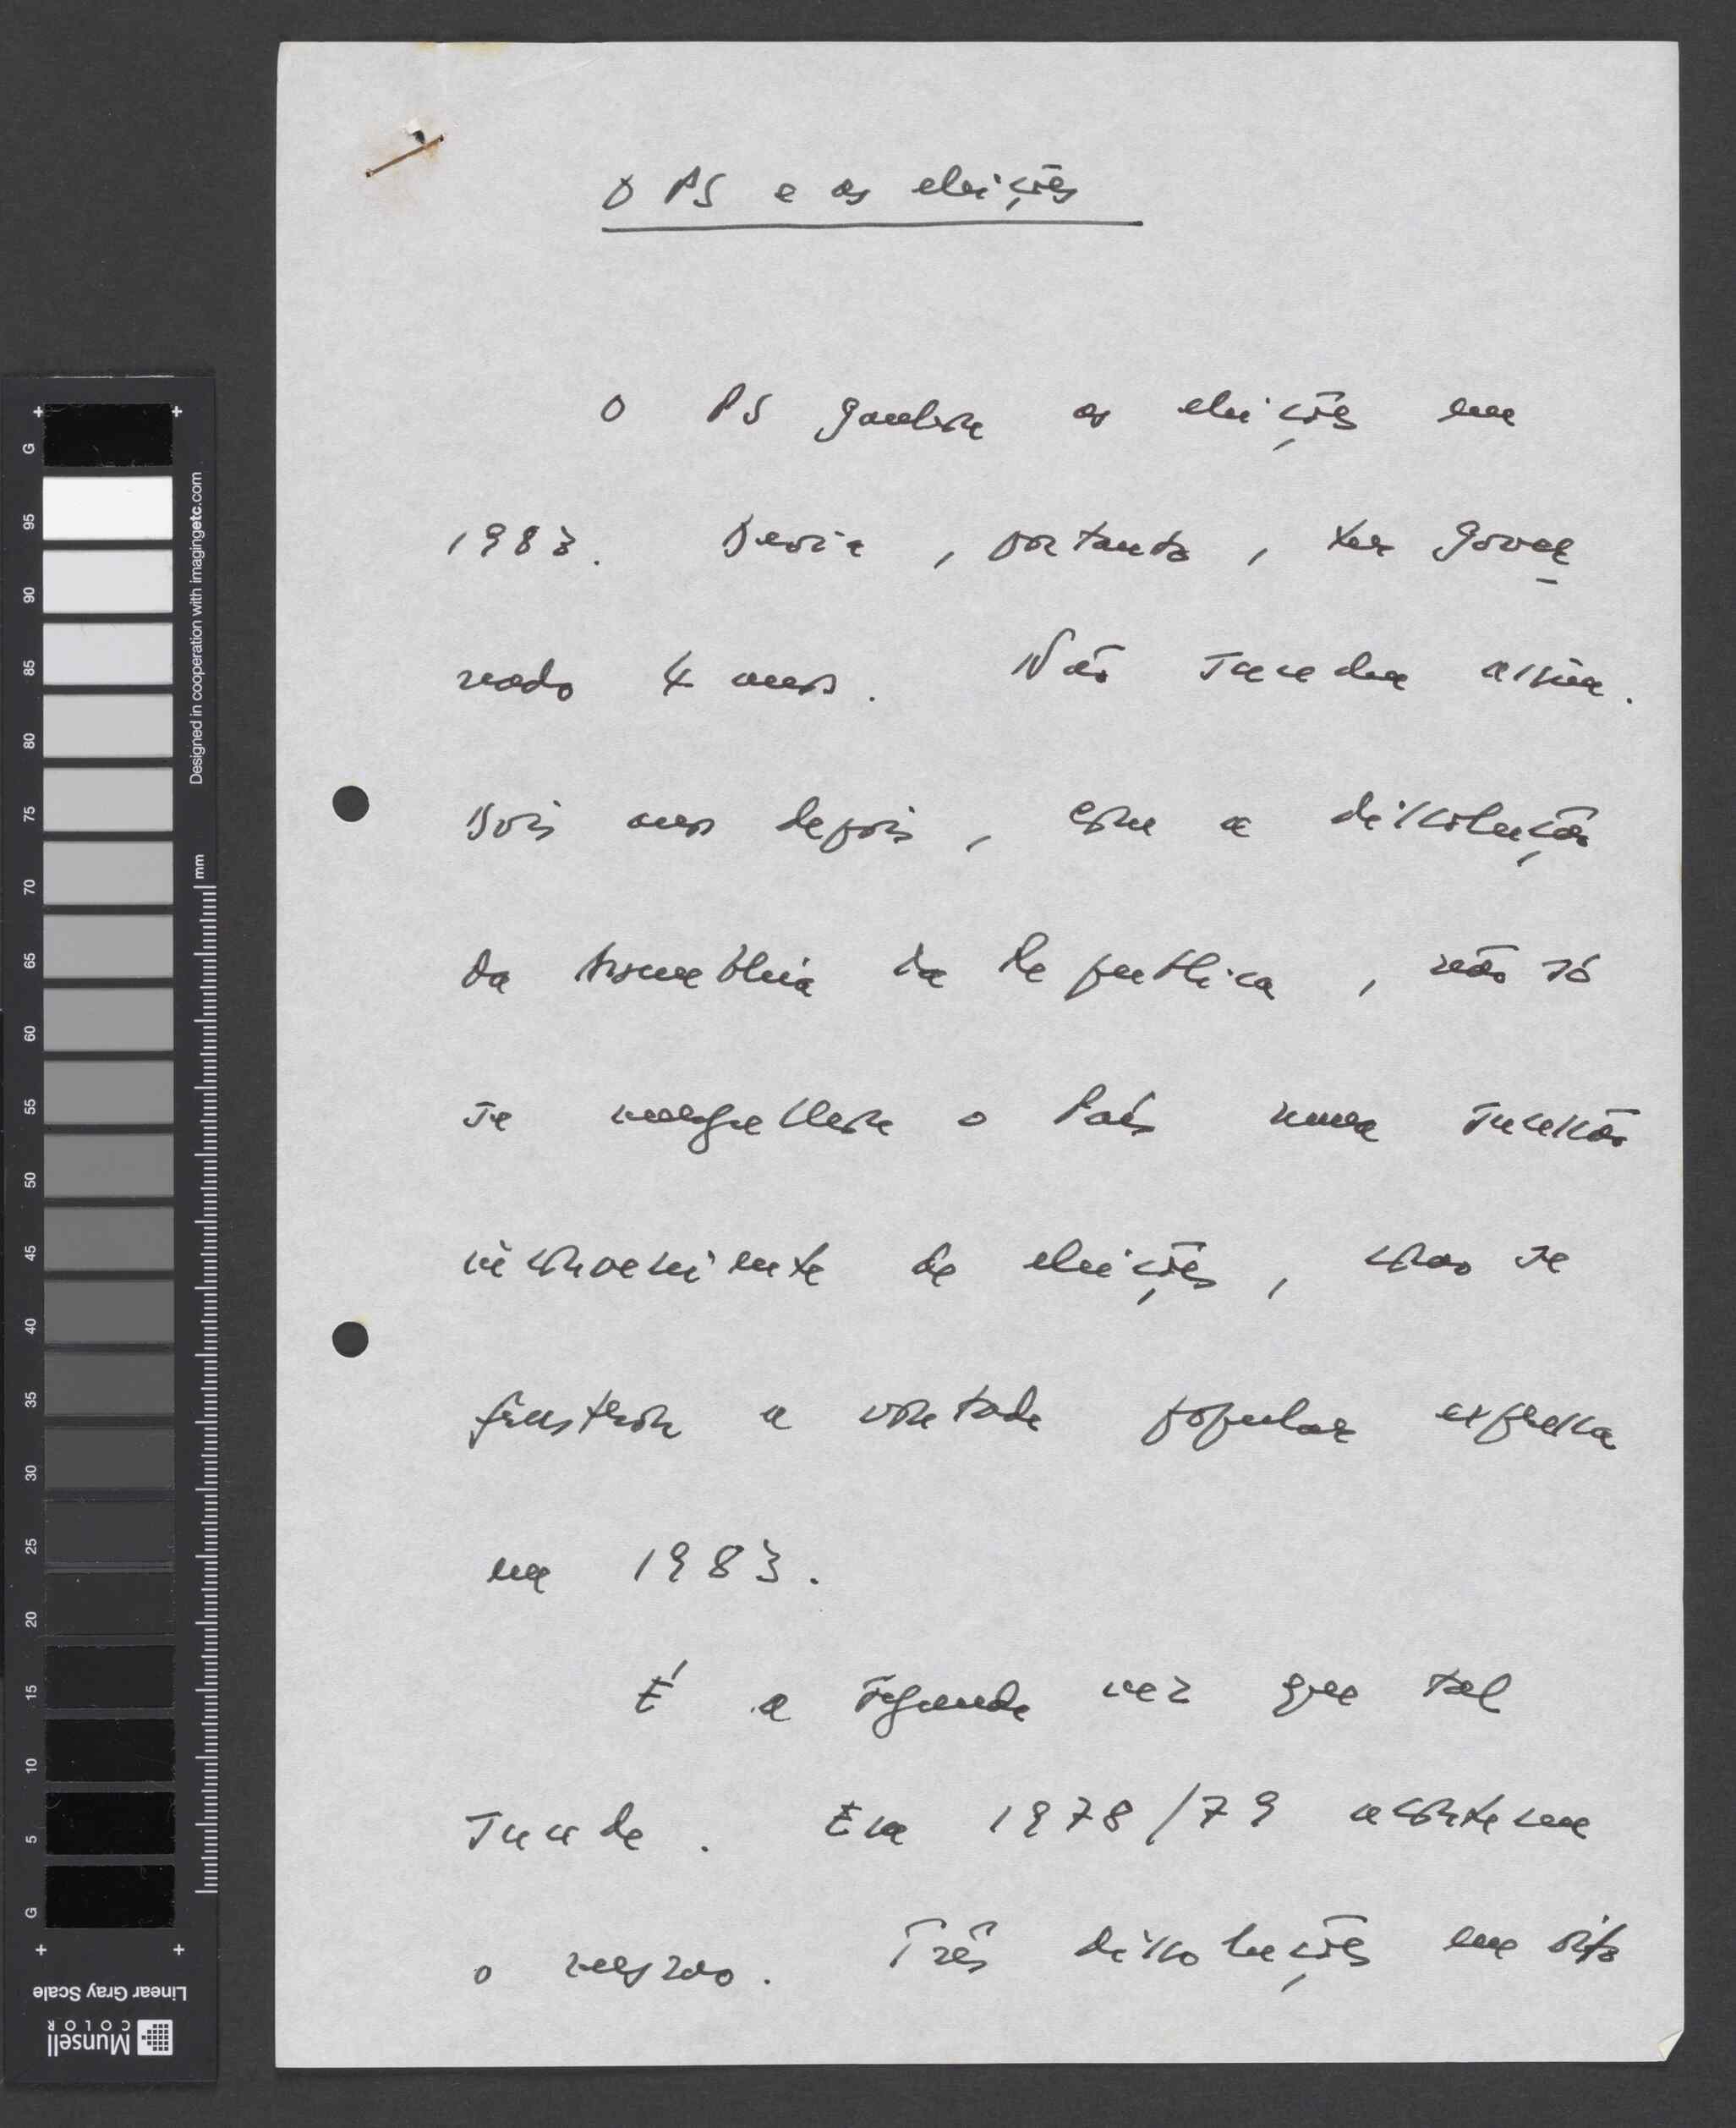 O PS e as eleições
O PS ganhou as eleições em
1983. Devia, portanto, ter gover
nado 4 anos. Não sucedeu assim.
Dois anos depois, com a dissolução
da Assembleia da Republica, não só
se mergulhou o País numa sucessão
inconveniente de eleições, como se
frustrou a vontade popular expressa
em 1983.
É a segunda vez que tal
sucede. Em 1978/79 aconteceu
o mesmo. Três dissoluções em oito
G
95
90
85
80
75
70
65
60
55
50
45
40
35
30
25
20
15
10
5
G
Designed in cooperation with imagingetc.com
mm
Linear Gray Scale
Munsell
COLOR